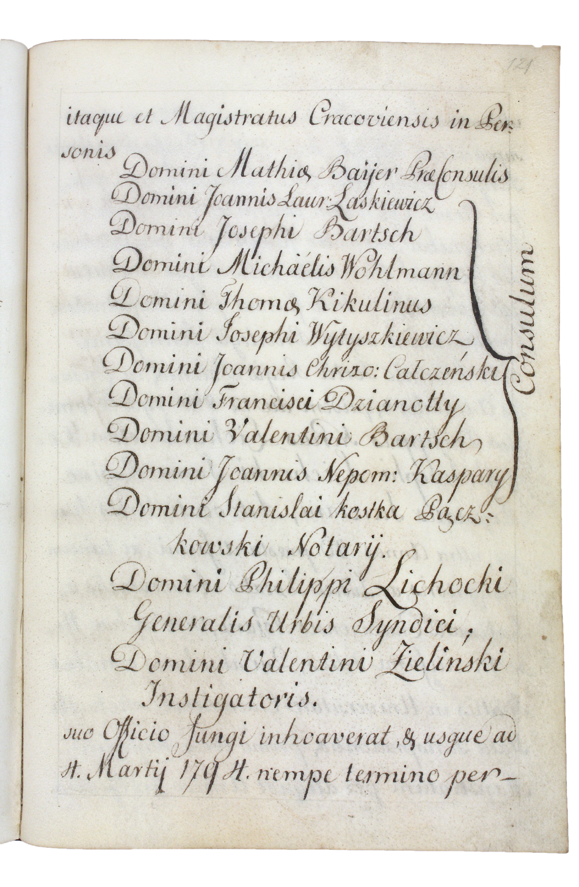 121
itaque et Magistratus Cracoviensis in Per:
sonis
Domini Mathiæ Baijer PræConsulis
Domini Joannis Laur: Laskiewicz
Domini Josephi Bartsch
Domini Michaëlis Wohlmann
Domini Thomæ Kikulinus
Domini Josephi Wytyszkiewicz
Domini Joannis Chrizo: Całczeński
Domini Francisci Dzianotty
Domini Valentini Bartsch
Domini Joannis Nepom: Kaspary
Consulum
Domini Stanislai kostka Pącz:
kowski Notarij
Domini Philippi Lichocki
Generalis Urbis Syndici.
Domini Valentini Zieliński
Instigatoris.
suo Officio Fungi inhoaverat, & usque ad
4. Martij 1794. nempe termino per-